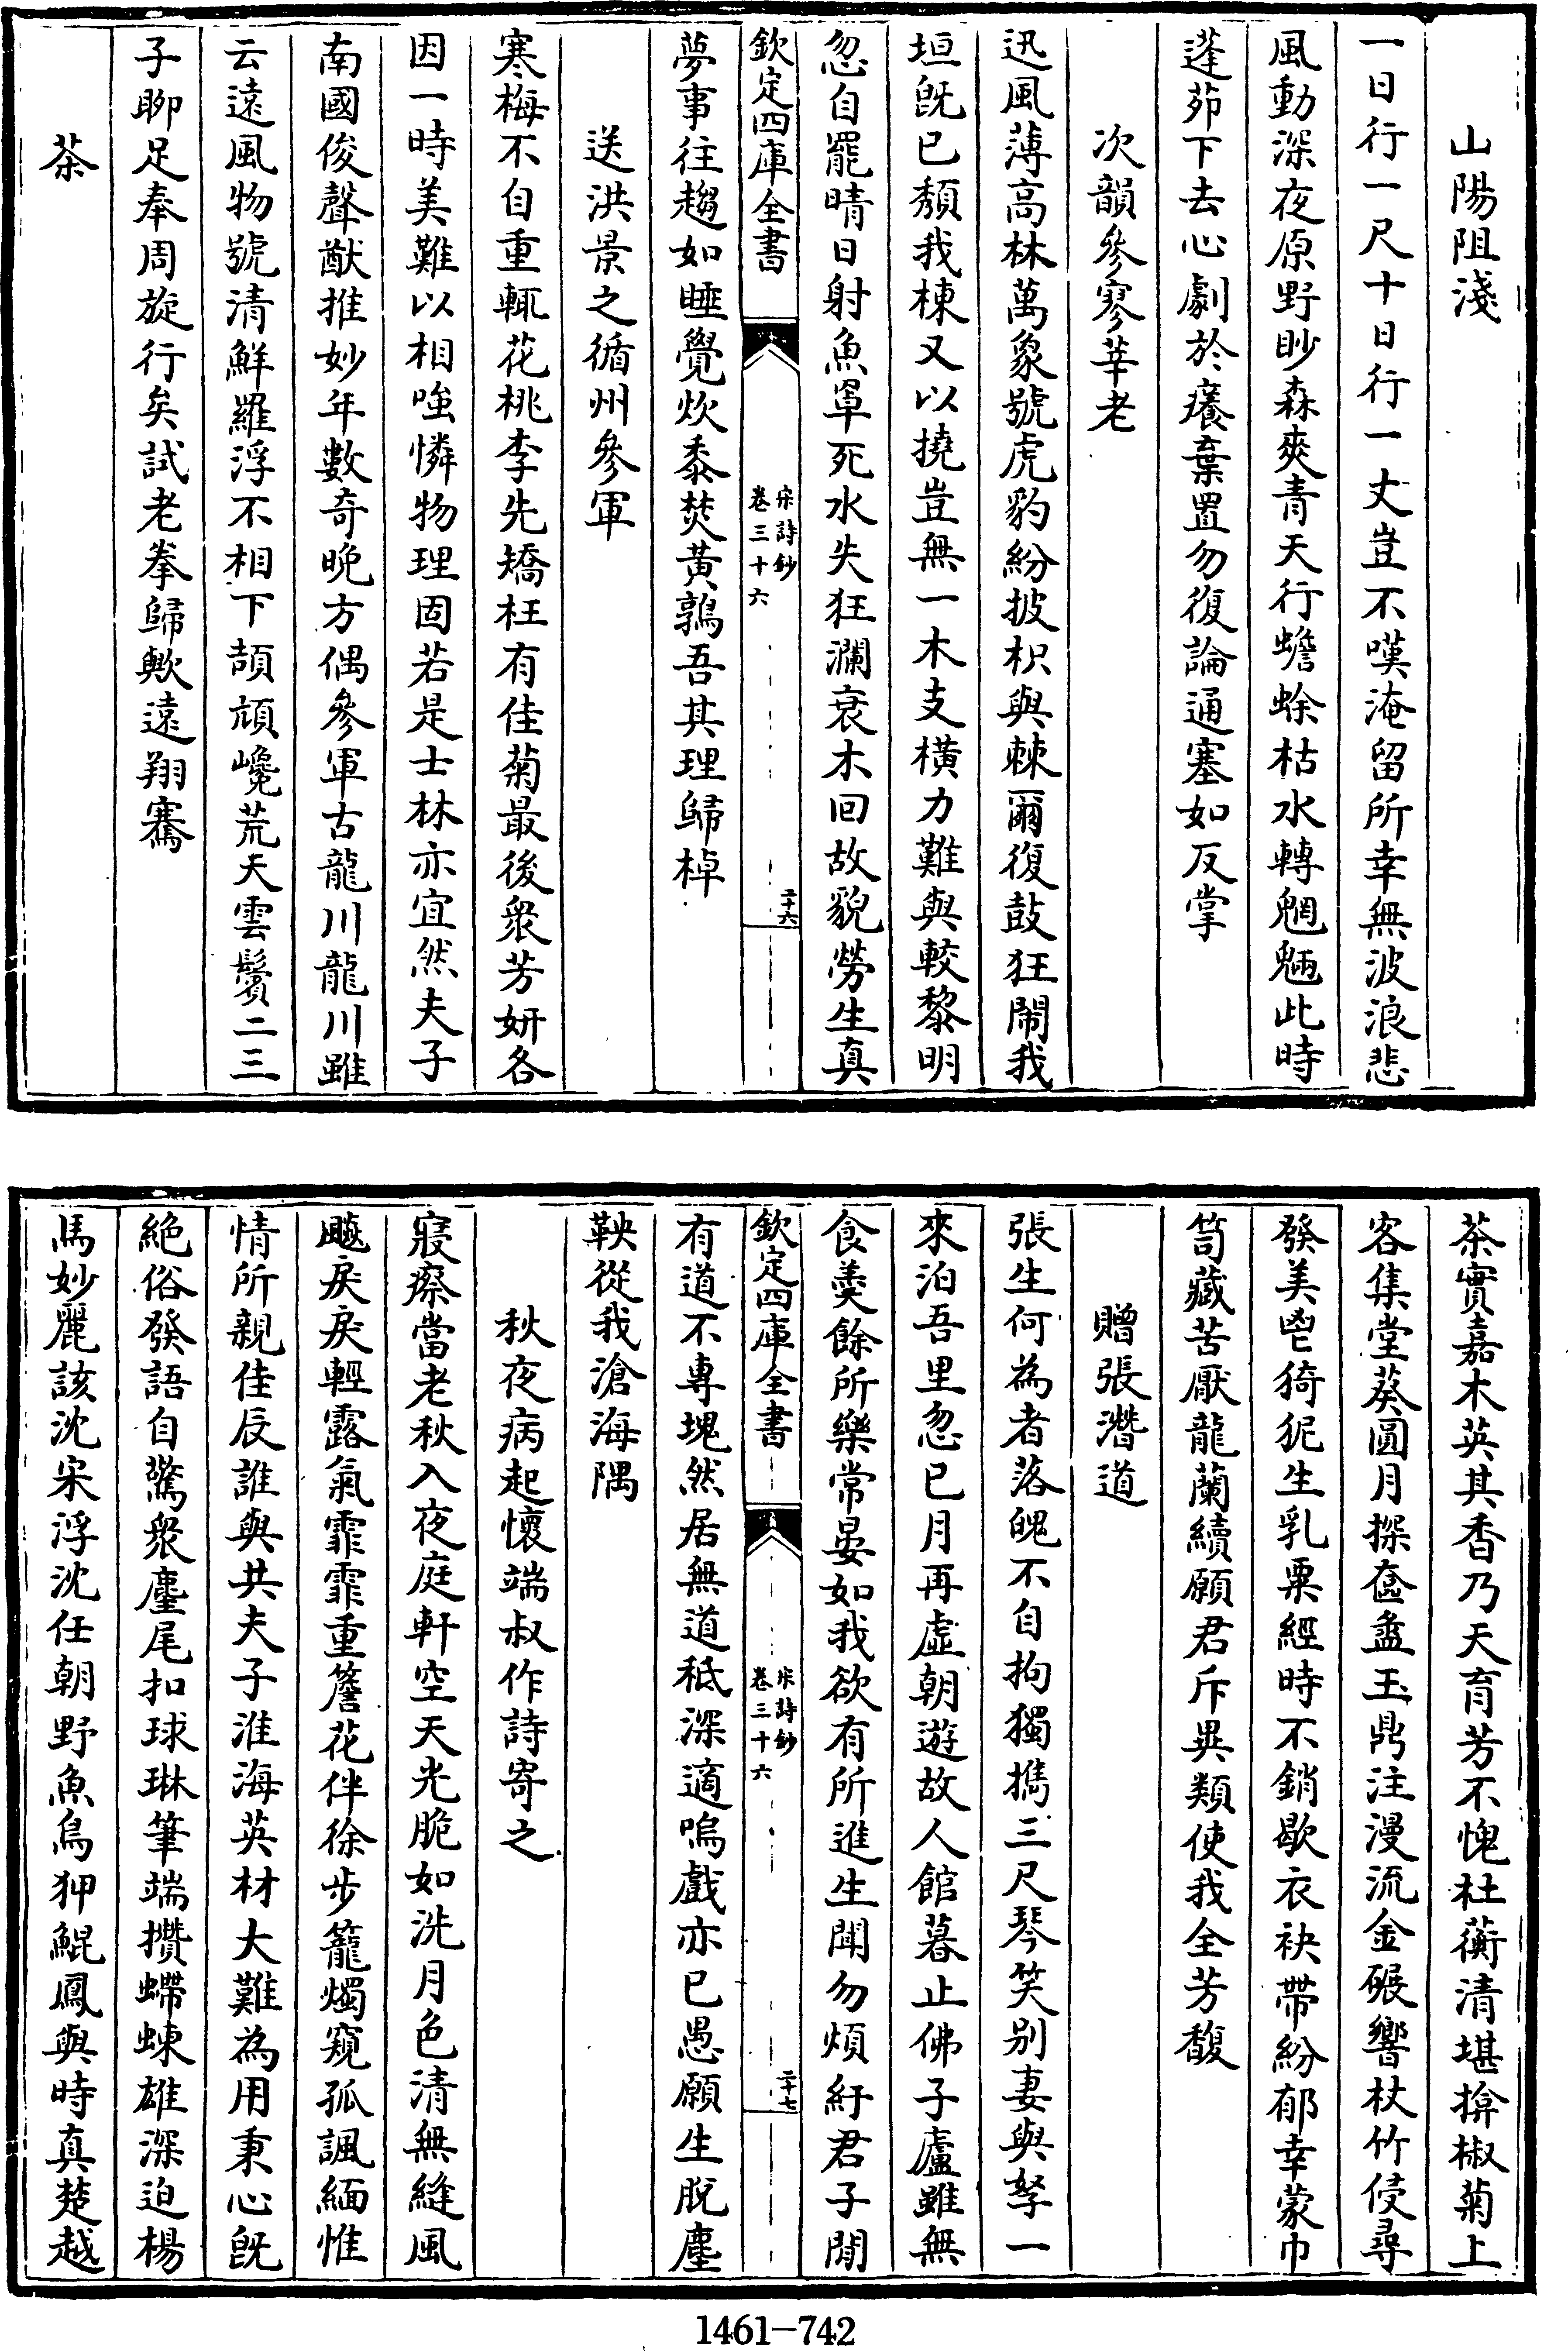 山陽阻淺
一日行一尺十日行一丈豈不嘆淹留所幸無波浪悲
風動深夜原野眇森爽青天行蟾蜍枯水轉魍魎此時
蓬茆下去心劇於癢棄置勿復論通塞如反掌
次韻參寥莘老
迅風薄高林萬象號虎豹紛披枳與棘爾復鼓狂鬧我
垣既已頹我棟又以撓豈無一木支横力難與較黎明
忽自罷晴日射魚罩死水失狂瀾衰木回故貌勞生真
欽定四庫全書
宋詩鈔
卷三十六
二十六
夢事往趨如睡覺炊黍焚黄鶉吾其理歸棹
送洪景之循州參軍
寒梅不自重輒花桃李先矯枉有佳菊最後衆芳妍各
因一時美難以相嗤憐物理固若是士林亦宜然夫子
南國俊聲猷推妙年數奇晚方偶參軍古龍川龍川雖
云遠風物號清鮮羅浮不相下頡頏巉荒天雲鬢二三
子聊足奉周旋行矣試老拳歸歟遠翔騫
茶
茶實嘉木英其香乃天育芳不愧杜蘅清堪揜椒菊上
客集堂葵圓月探奩盝玉鼎注漫流金碾響杖竹侵尋
發美鬯猗狔生乳粟經時不銷歇衣袂帶紛郁幸蒙巾
笥藏苦厭龍蘭續願君斥異類使我全芳馥
贈張潛道
張生何為者落魄不自拘獨攜三尺琴笑别妻與孥一
來泊吾里忽已月再虛朝遊故人館暮止佛子廬雖無
食羮餘所樂常晏如我欲有所進生聞勿煩紆君子閒
欽定四庫全書
宋詩鈔
卷三十六
二十七
有道不專塊然居無道秪深適嗚戲亦已愚願生脱塵
鞅從我滄海隅
秋夜病起懷端叔作詩寄之
寢瘵當老秋入夜庭軒空天光脆如洗月色清無縫風
飈戾戾輕露氣霏霏重簷花伴徐步籠燭窺孤諷緬惟
情所親佳辰誰與共夫子淮海英材大難為用秉心既
絶俗發語自驚衆塵尾扣球琳筆端攢螮蝀雄深迫楊
馬妙麗該沈宋浮沈任朝野魚鳥狎鯤鳳與時真楚越
1461—742